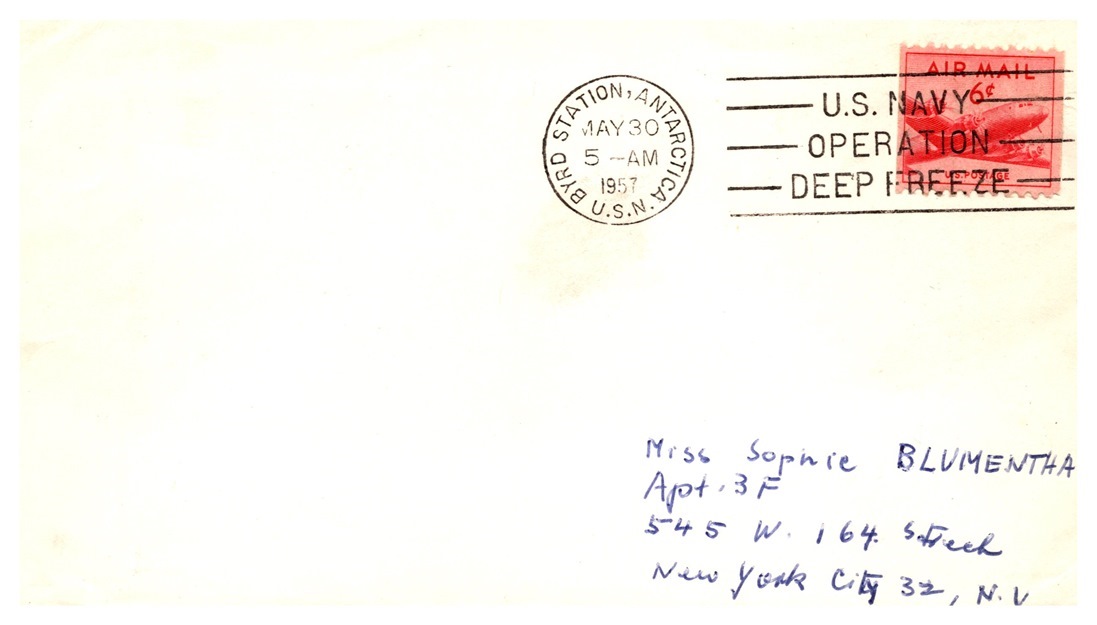 BYRD STATION, ANTARCTICA.
MAY 30
5 -AM
1957
U.S.N.
U.S. NAVY
OPERATION
DEEP FREEZE
AIR MAIL
6¢
U.S. POSTAGE
Miss Sophie BLUMENTHA
Apt. 3F
545 W. 164 Street
New York City 32, N.Y